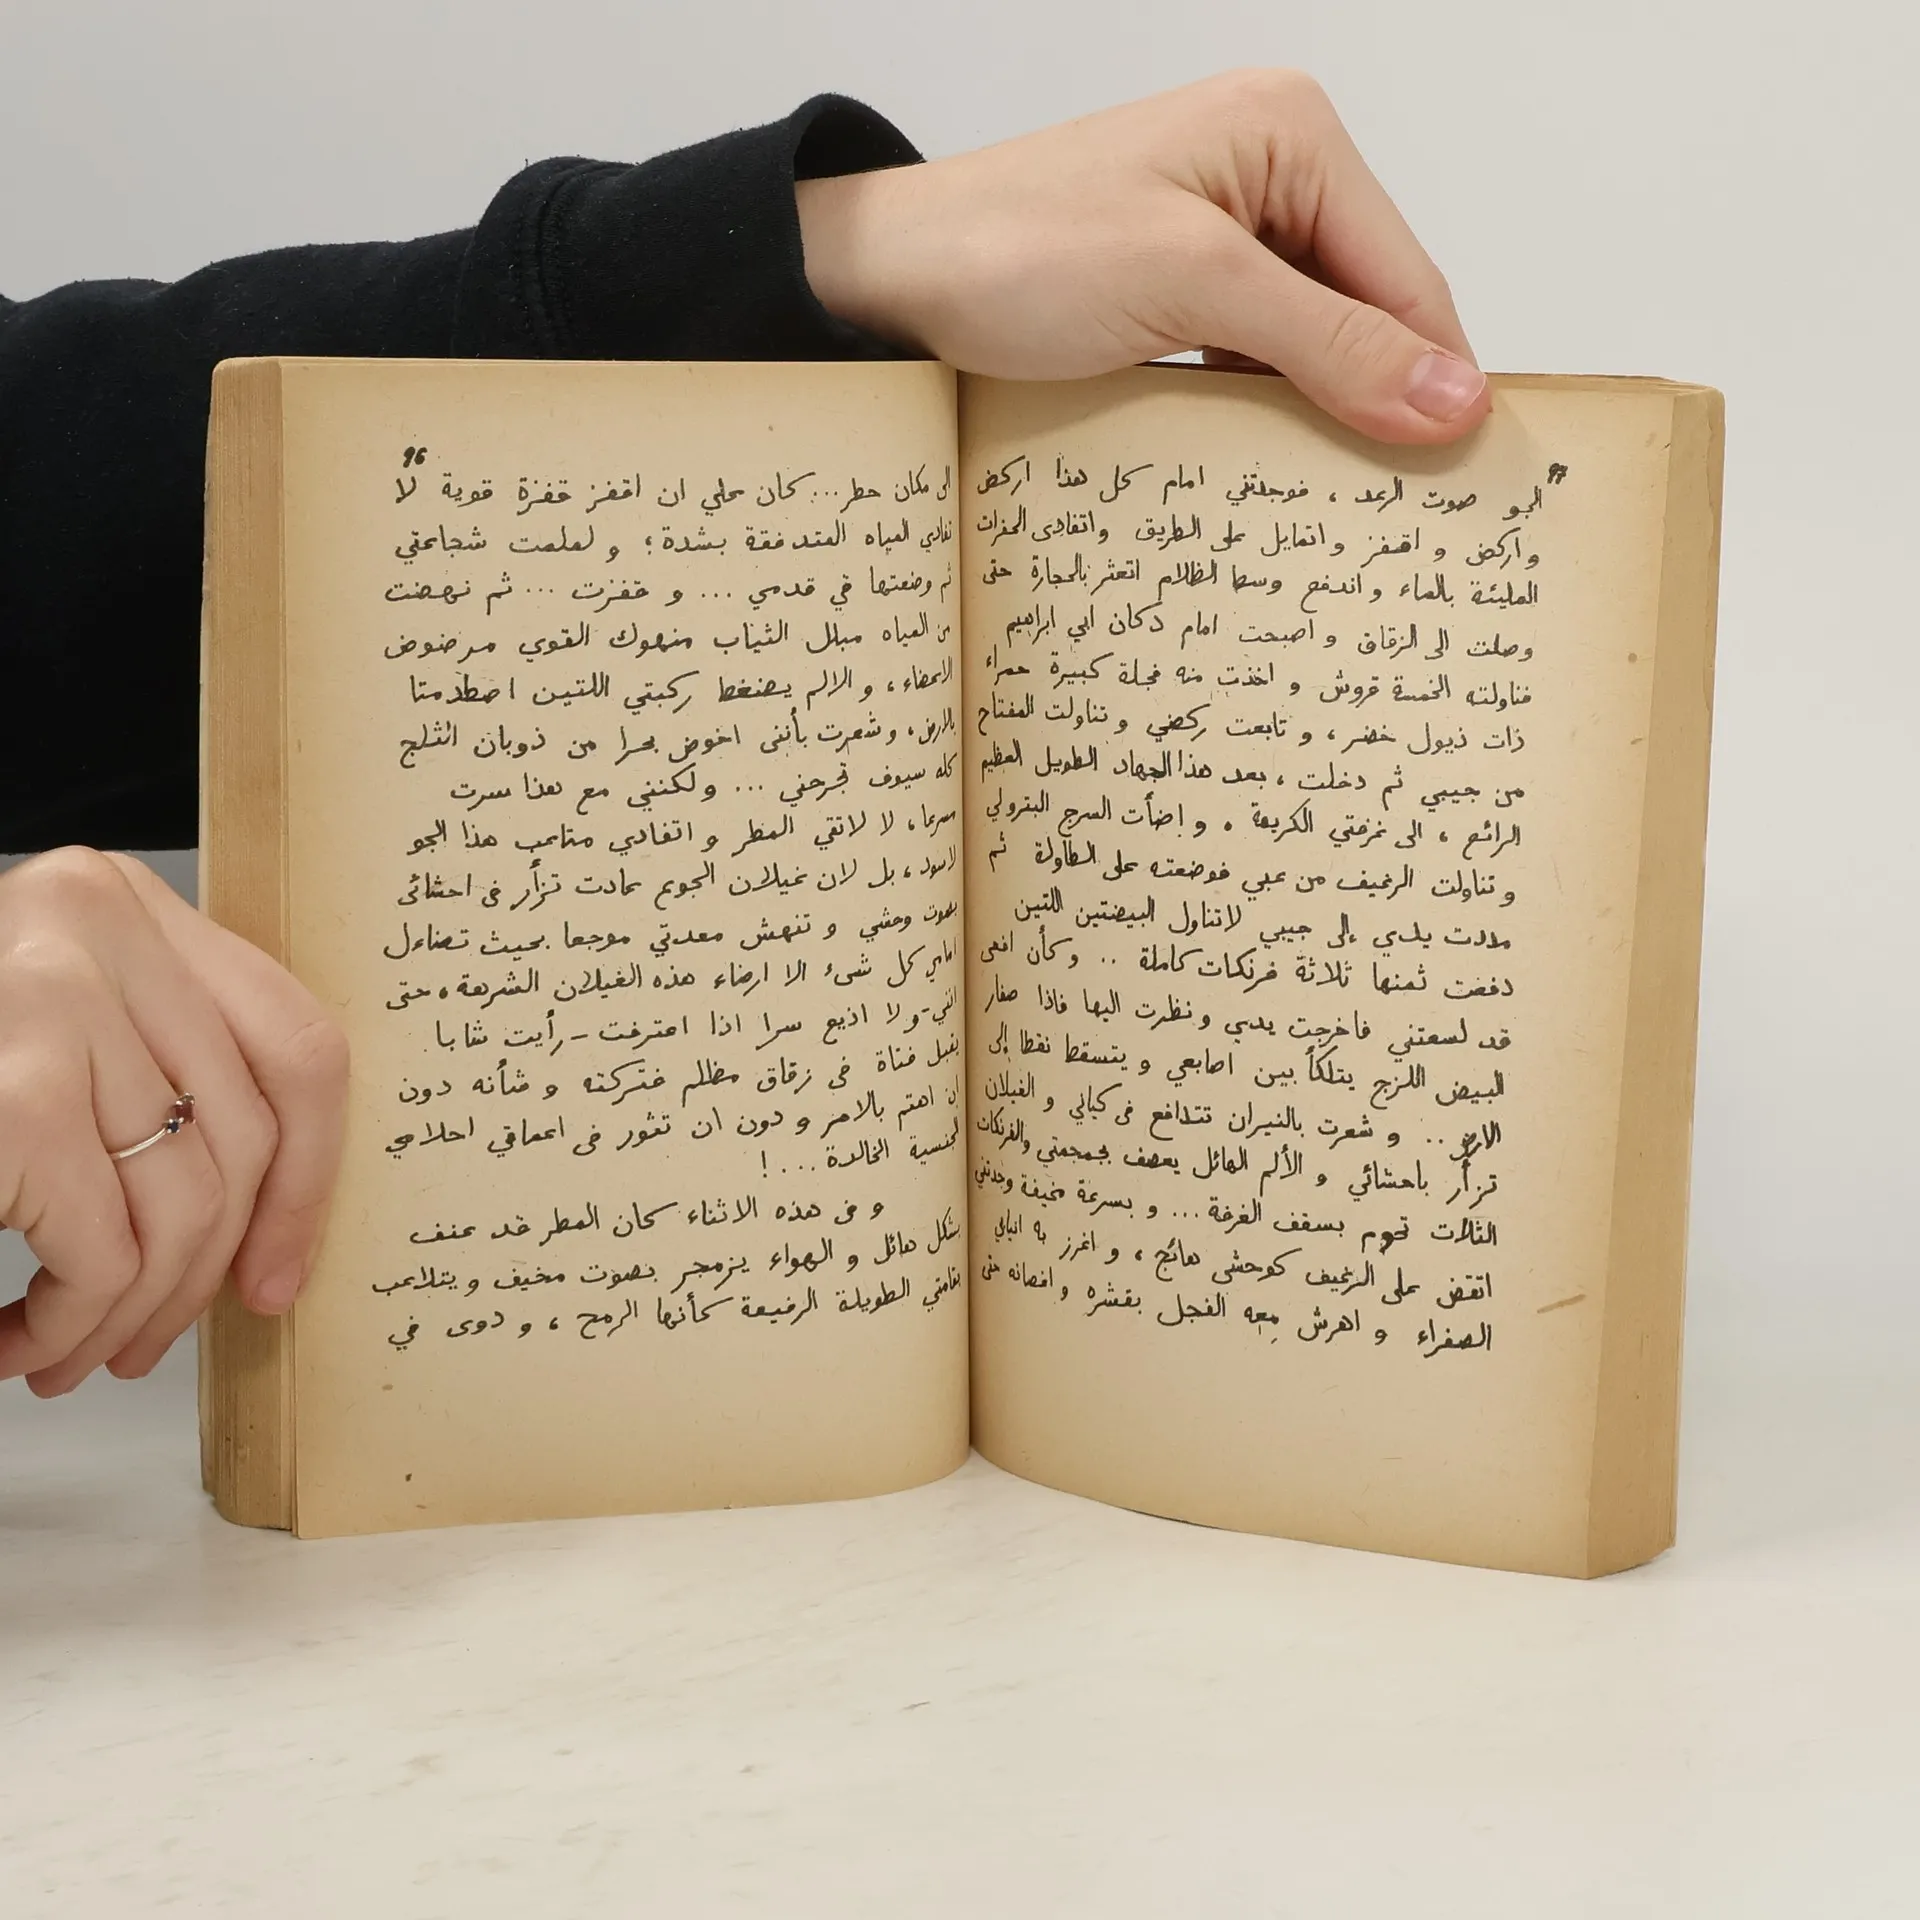 96
الى مكان خطر... كان علي ان اقفز قفزة قوية لا
تفادي المياه المتدفقة بشدة؛ و لملمت شجاعتي
ثم وضعتها في قدمي ... و قفزت ... ثم نهضت
من المياه مبلل الثياب منهوك القوي مرضوض
الاعضاء، و الالم يضغط ركبتي اللتين اصطدمتا
بالارض، و شعرت بأننى اخوض بحرا من ذوبان الثلج
كله سيوف تجرحني ... ولكنني مع هذا سرت
مسرعا، لا لاتقي المطر و اتفادي متاعب هذا الجو
لاسود، بل لان غيلان الجوع عادت تزأر فى احشائى
بصوت وحشي و تنهش معدتي موجعا بحيث تضاءل
امامي كل شىء الا ارضاء هذه الغيلان الشرهة، حتى
انني - و لا اذيع سرا اذا اعترفت - رأيت شابا
يقبل فتاة فى زقاق مظلم فتركته و شأنه دون
ان اهتم بالامر و دون ان تثور فى اعماقي احلامي
لجنسية الخالدة ...!
و فى هذه الاثناء كان المطر قد عنف
بشكل هائل و الهواء يزمجر بصوت مخيف و يتلاعب
بقامتي الطويلة الرفيعة كأنها الرمح ، و دوى في
97
الجو صوت الرعد ، فوجدتني امام كل هذا اركض
و اركض و اقفز و اتمايل على الطريق و اتفادى الحفرات
المليئة بالماء و اندفع وسط الظلام اتعثر بالحجارة حتى
وصلت الى الزقاق و اصبحت امام دكان ابي ابراهيم
فناولته الخمسة قروش و اخذت منه فجلة كبيرة حمراء
ذات ذيول خضر، و تابعت ركضي و تناولت المفتاح
من جيبي ثم دخلت ، بعد هذا الجهاد الطويل العظيم
الرائع ، الى غرفتي الكريهة . و اضأت السرج البترولي
و تناولت الرغيف من عبي فوضعته على الطاولة ثم
مددت يدي إلى جيبي لاتناول البيضتين اللتين
دفعت ثمنها ثلاثة فرنكات كاملة .. و كأن افعى
قد لسعتني فاخرجت يدي و نظرت اليها فاذا صفار
البيض اللزج يتلكأ بين اصابعي و يتسقط نقطا إلى
الارض .. و شعرت بالنيران تتدافع فى كياني و الغيلان
تزأر باحشائي و الألم الهائل يعصف بجمجمتي والفرنكات
الثلاث تحوم بسقف الغرفة ... و بسرعة مخيفة وجدتني
انقض على الرغيف كوحش هائج ، و اغرز به انيابي
الصفراء و اهرش معه الفجل بقشره و اغصانه حتى